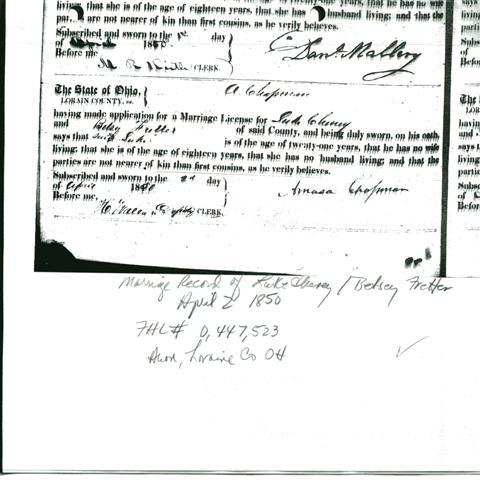 living; that she is of the age of eighteen years, that she has no husband living; and that the
parties are not nearer of kin than first cousins, as he verily believes.
Subscribed and sworn to the 1st day
of April 1850
Before me
CLERK.
Danl. Mallery
The State of Ohio,
LORAIN COUNTY, ss.
A. Chapman
having made application for a Marriage License for Luke Cheney
and Betsy Fretter of said County, and being duly sworn, on his oath,
says that said Luke is of the age of twenty-one years, that he has no wife
living; that she is of the age of eighteen years, that she has no husband living; and that the
parties are not nearer of kin than first cousins, as he verily believes.
Subscribed and sworn to the 2d day
of April 1850
Before me,
Deputy CLERK.
Amasa Chapman
Marriage Record of Luke Cheney / Betsey Fretter
April 2 1850
FHL# 0,447,523
Avon, Loraine Co OH